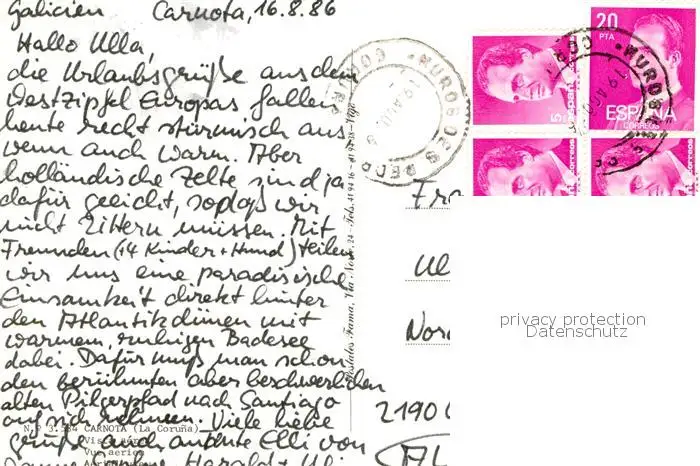 Galicien Carnota, 16.8.86
Hallo Ulla,
die Urlaubsgrüße aus dem
Westzipfel Europas fallen
heute recht stürmisch aus
wenn auch warm. Aber
holländische Zelte sind ja
dafür geeicht, sodaß wir
nicht zittern müssen. Mit
Freunden (+4 Kinder + Hund) teilen
wir uns eine paradisische
Einsamkeit direkt hinter
den Atlantikdünen mit
warmem, ruhigen Badesee
dabei. Dafür muß man schon
den berühmten aber beschwerlichen
alten Pilgerpfad nach Santiago
auf sich nehmen. Viele liebe
N.º 3.584 CARNOTA (La Coruña)
Grüße auch an Elli von
Harald + Uli
Postales Fama,
20
PTA
ESPAÑA
CORREOS
5
correos
correos
MUROS
Fra
Ul
Nord
2190
privacy protection
Datenschutz